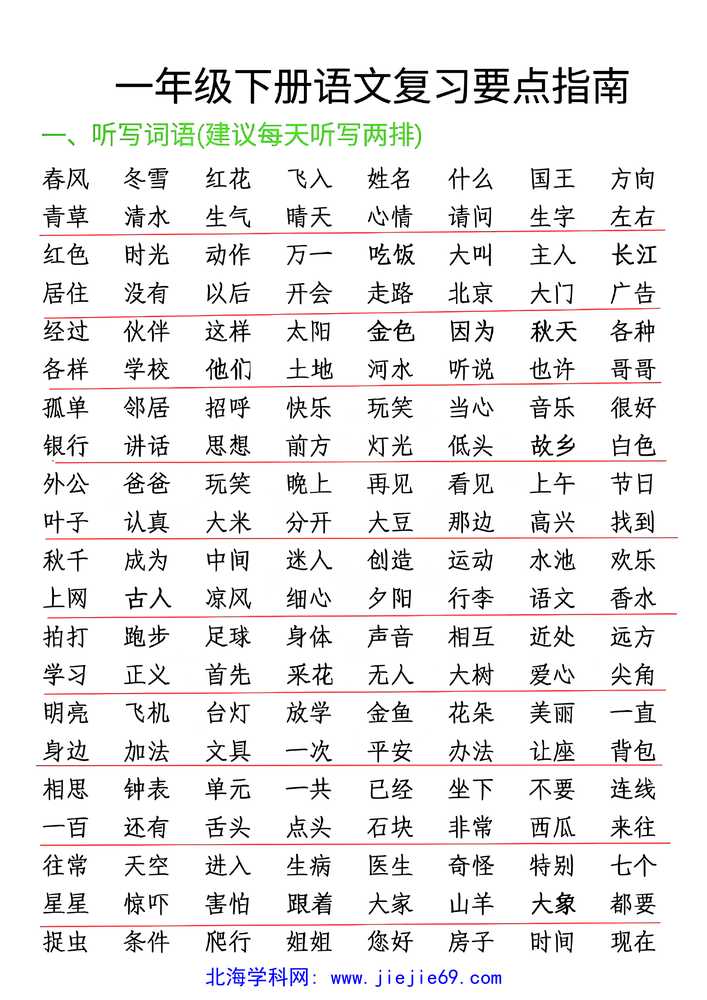 一年级下册语文复习要点指南
一、听写词语(建议每天听写两排)
春风 冬雪 红花 飞入 姓名 什么 国王 方向
青草 清水 生气 晴天 心情 请问 生字 左右
红色 时光 动作 万一 吃饭 大叫 主人 长江
居住 没有 以后 开会 走路 北京 大门 广告
经过 伙伴 这样 太阳 金色 因为 秋天 各种
各样 学校 他们 土地 河水 听说 也许 哥哥
孤单 邻居 招呼 快乐 玩笑 当心 音乐 很好
银行 讲话 思想 前方 灯光 低头 故乡 白色
外公 爸爸 玩笑 晚上 再见 看见 上午 节日
叶子 认真 大米 分开 大豆 那边 高兴 找到
秋千 成为 中间 迷人 创造 运动 水池 欢乐
上网 古人 凉风 细心 夕阳 行李 语文 香水
拍打 跑步 足球 身体 声音 相互 近处 远方
学习 正义 首先 采花 无人 大树 爱心 尖角
明亮 飞机 台灯 放学 金鱼 花朵 美丽 一直
身边 加法 文具 一次 平安 办法 让座 背包
相思 钟表 单元 一共 已经 坐下 不要 连线
一百 还有 舌头 点头 石块 非常 西瓜 来往
往常 天空 进入 生病 医生 奇怪 特别 七个
星星 惊吓 害怕 跟着 大家 山羊 大象 都要
捉虫 条件 爬行 姐姐 您好 房子 时间 现在
北海学科网: www.jiejie69.com